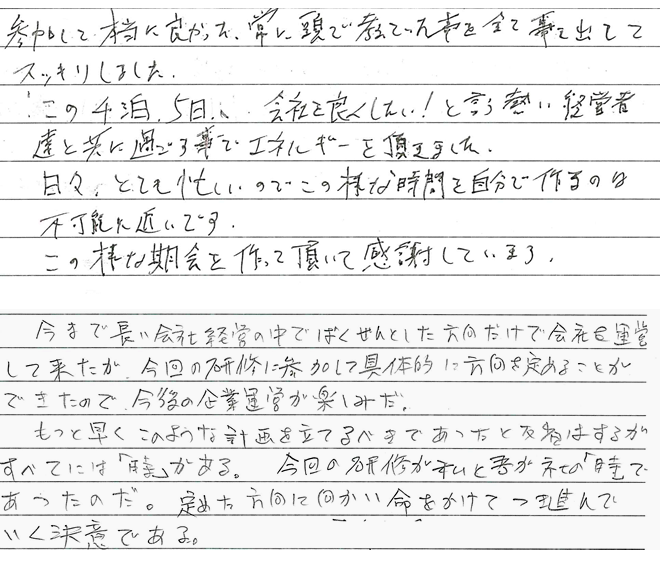 参加して本当に良かった、常に頭で考えていた事を全て事出てて
スッキリしました。
この4泊、5日、会社を良くしたい!と言う熱い経営者
達と共に過ごす事でエネルギーを頂きました。
日々、とても忙しいのでこの様な時間を自分で作るのは
不可能に近いです。
この様な期会を作って頂いて感謝しています。
今まで長い会社経営の中でばくぜんとした方向だけで会社を運営
して来たが、今回の研修に参加して具体的に方向を定めることが
できたので、今後の企業運営が楽しみだ。
もっと早くこのような計画を立てるべきであったと反省はするが
すべてには「時」がある。今回の研修が私と吾が社の「時」で
あったのだ。定めた方向に向かい命をかけてつき進んで
いく決意である。